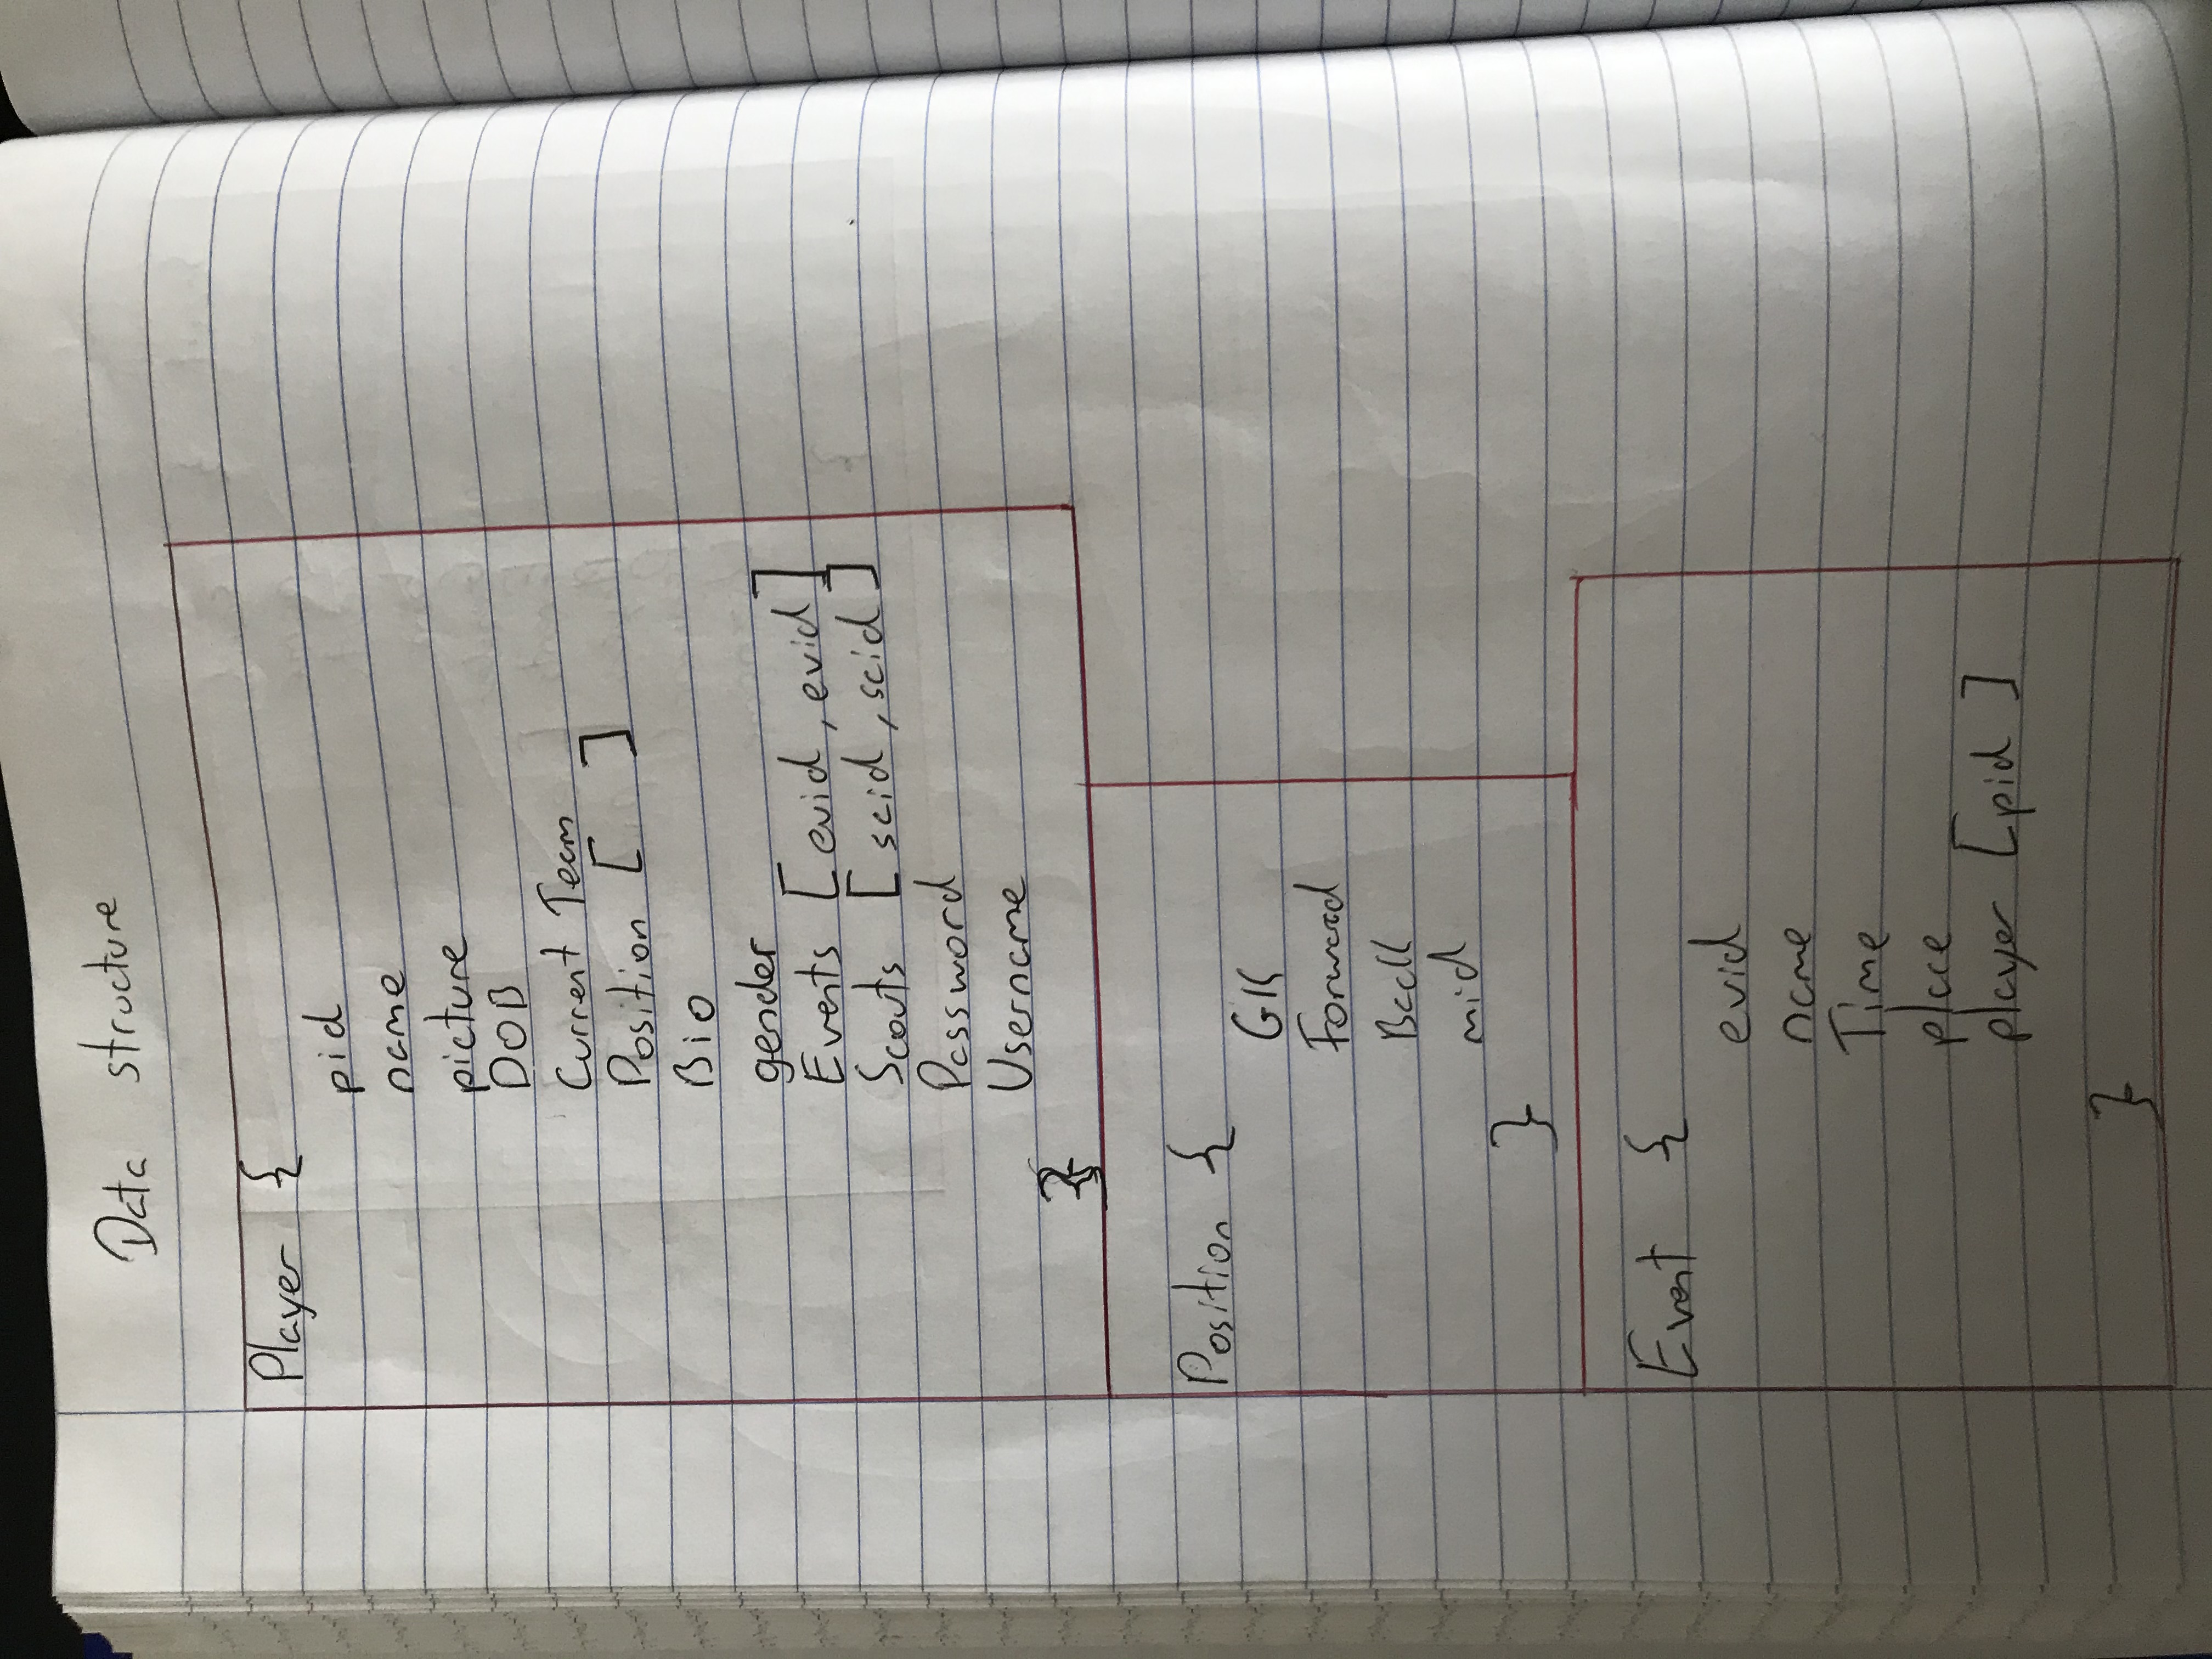 Data structure
Player {
pid
name
picture
DOB
Current Team
Position [ ]
Bio
gender
Events [evid, evid]
Scouts [scid, scid]
Password
Username
}
Position {
GK
Forward
Back
mid
}
Event {
evid
name
Time
place
player [pid ]
}